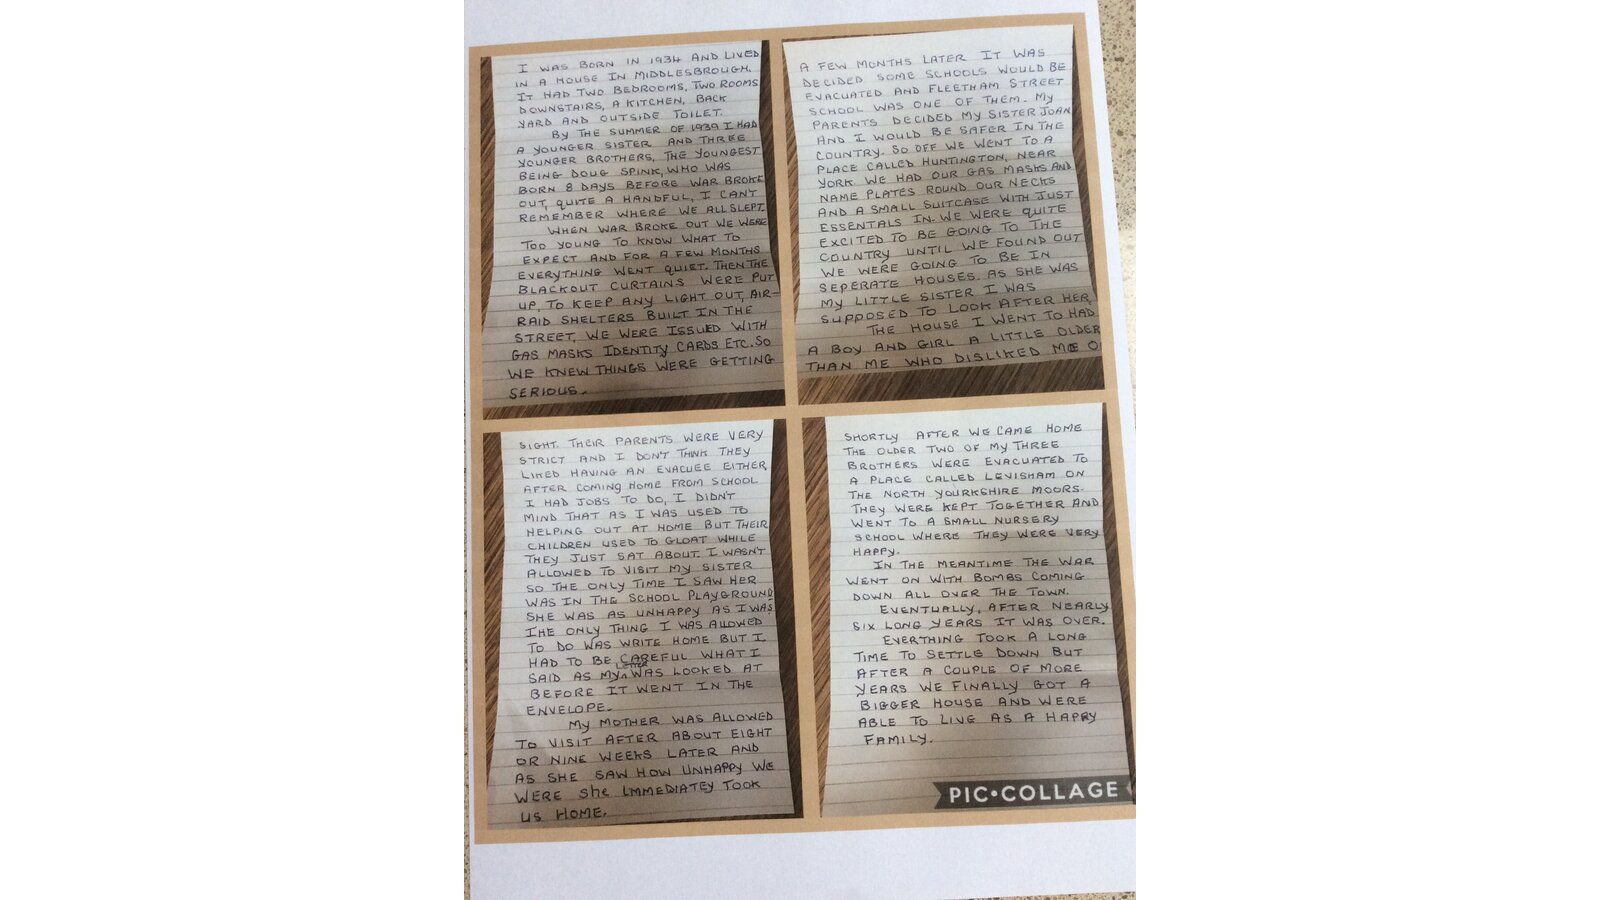 I WAS BORN IN 1934 AND LIVED
IN A HOUSE IN MIDDLESBROUGH.
IT HAD TWO BEDROOMS, TWO ROOMS
DOWNSTAIRS, A KITCHEN, BACK
YARD AND OUTSIDE TOILET.
BY THE SUMMER OF 1939 I HAD
A YOUNGER SISTER AND THREE
YOUNGER BROTHERS, THE YOUNGEST
BEING DOUG SPINK, WHO WAS
BORN 8 DAYS BEFORE WAR BROKE
OUT, QUITE A HANDFUL, I CAN'T
REMEMBER WHERE WE ALL SLEPT.
WHEN WAR BROKE OUT WE WERE
TOO YOUNG TO KNOW WHAT TO
EXPECT AND FOR A FEW MONTHS
EVERYTHING WENT QUIET. THEN THE
BLACKOUT CURTAINS WERE PUT
UP, TO KEEP ANY LIGHT OUT, AIR-
RAID SHELTERS BUILT IN THE
STREET, WE WERE ISSUED WITH
GAS MASKS IDENTITY CARDS ETC. SO
WE KNEW THINGS WERE GETTING
SERIOUS.
A FEW MONTHS LATER IT WAS
DECIDED SOME SCHOOLS WOULD BE
EVACUATED AND FLEETHAM STREET
SCHOOL WAS ONE OF THEM. MY
PARENTS DECIDED MY SISTER JOAN
AND I WOULD BE SAFER IN THE
COUNTRY. SO OFF WE WENT TO A
PLACE CALLED HUNTINGTON, NEAR
YORK. WE HAD OUR GAS MASKS AND
NAME PLATES ROUND OUR NECKS
AND A SMALL SUITCASE WITH JUST
ESSENTALS IN. WE WERE QUITE
EXCITED TO BE GOING TO THE
COUNTRY UNTIL WE FOUND OUT
WE WERE GOING TO BE IN
SEPERATE HOUSES. AS SHE WAS
MY LITTLE SISTER I WAS
SUPPOSED TO LOOK AFTER HER,
THE HOUSE I WENT TO HAD
A BOY AND GIRL A LITTLE OLDER
THAN ME WHO DISLIKED ME O
SIGHT. THEIR PARENTS WERE VERY
STRICT AND I DON'T THINK THEY
LIKED HAVING AN EVACUEE EITHER
AFTER COMING HOME FROM SCHOOL
I HAD JOBS TO DO, I DIDN'T
MIND THAT AS I WAS USED TO
HELPING OUT AT HOME BUT THEIR
CHILDREN USED TO GLOAT WHILE
THEY JUST SAT ABOUT. I WASN'T
ALLOWED TO VISIT MY SISTER
SO THE ONLY TIME I SAW HER
WAS IN THE SCHOOL PLAYGROUND
SHE WAS AS UNHAPPY AS I WAS
THE ONLY THING I WAS ALLOWED
TO DO WAS WRITE HOME BUT I
HAD TO BE CAREFUL WHAT I
SAID AS MY LETTER WAS LOOKED AT
BEFORE IT WENT IN THE
ENVELOPE.
MY MOTHER WAS ALLOWED
TO VISIT AFTER ABOUT EIGHT
OR NINE WEEKS LATER AND
AS SHE SAW HOW UNHAPPY WE
WERE She IMMEDIATEY TOOK
US HOME.
SHORTLY AFTER WE CAME HOME
THE OLDER TWO OF MY THREE
BROTHERS WERE EVACUATED TO
A PLACE CALLED LEVISHAM ON
THE NORTH YOURKSHIRE MOORS.
THEY WERE KEPT TOGETHER AND
WENT TO A SMALL NURSERY
SCHOOL WHERE THEY WERE VERY
HAPPY.
IN THE MEANTIME THE WAR
WENT ON WITH BOMBS COMING
DOWN ALL OVER THE TOWN.
EVENTUALLY, AFTER NEARLY
SIX LONG YEARS IT WAS OVER.
EVERTHING TOOK A LONG
TIME TO SETTLE DOWN BUT
AFTER A COUPLE OF MORE
YEARS WE FINALLY GOT A
BIGGER HOUSE AND WERE
ABLE TO LIVE AS A HAPPY
FAMILY.
PIC•COLLAGE